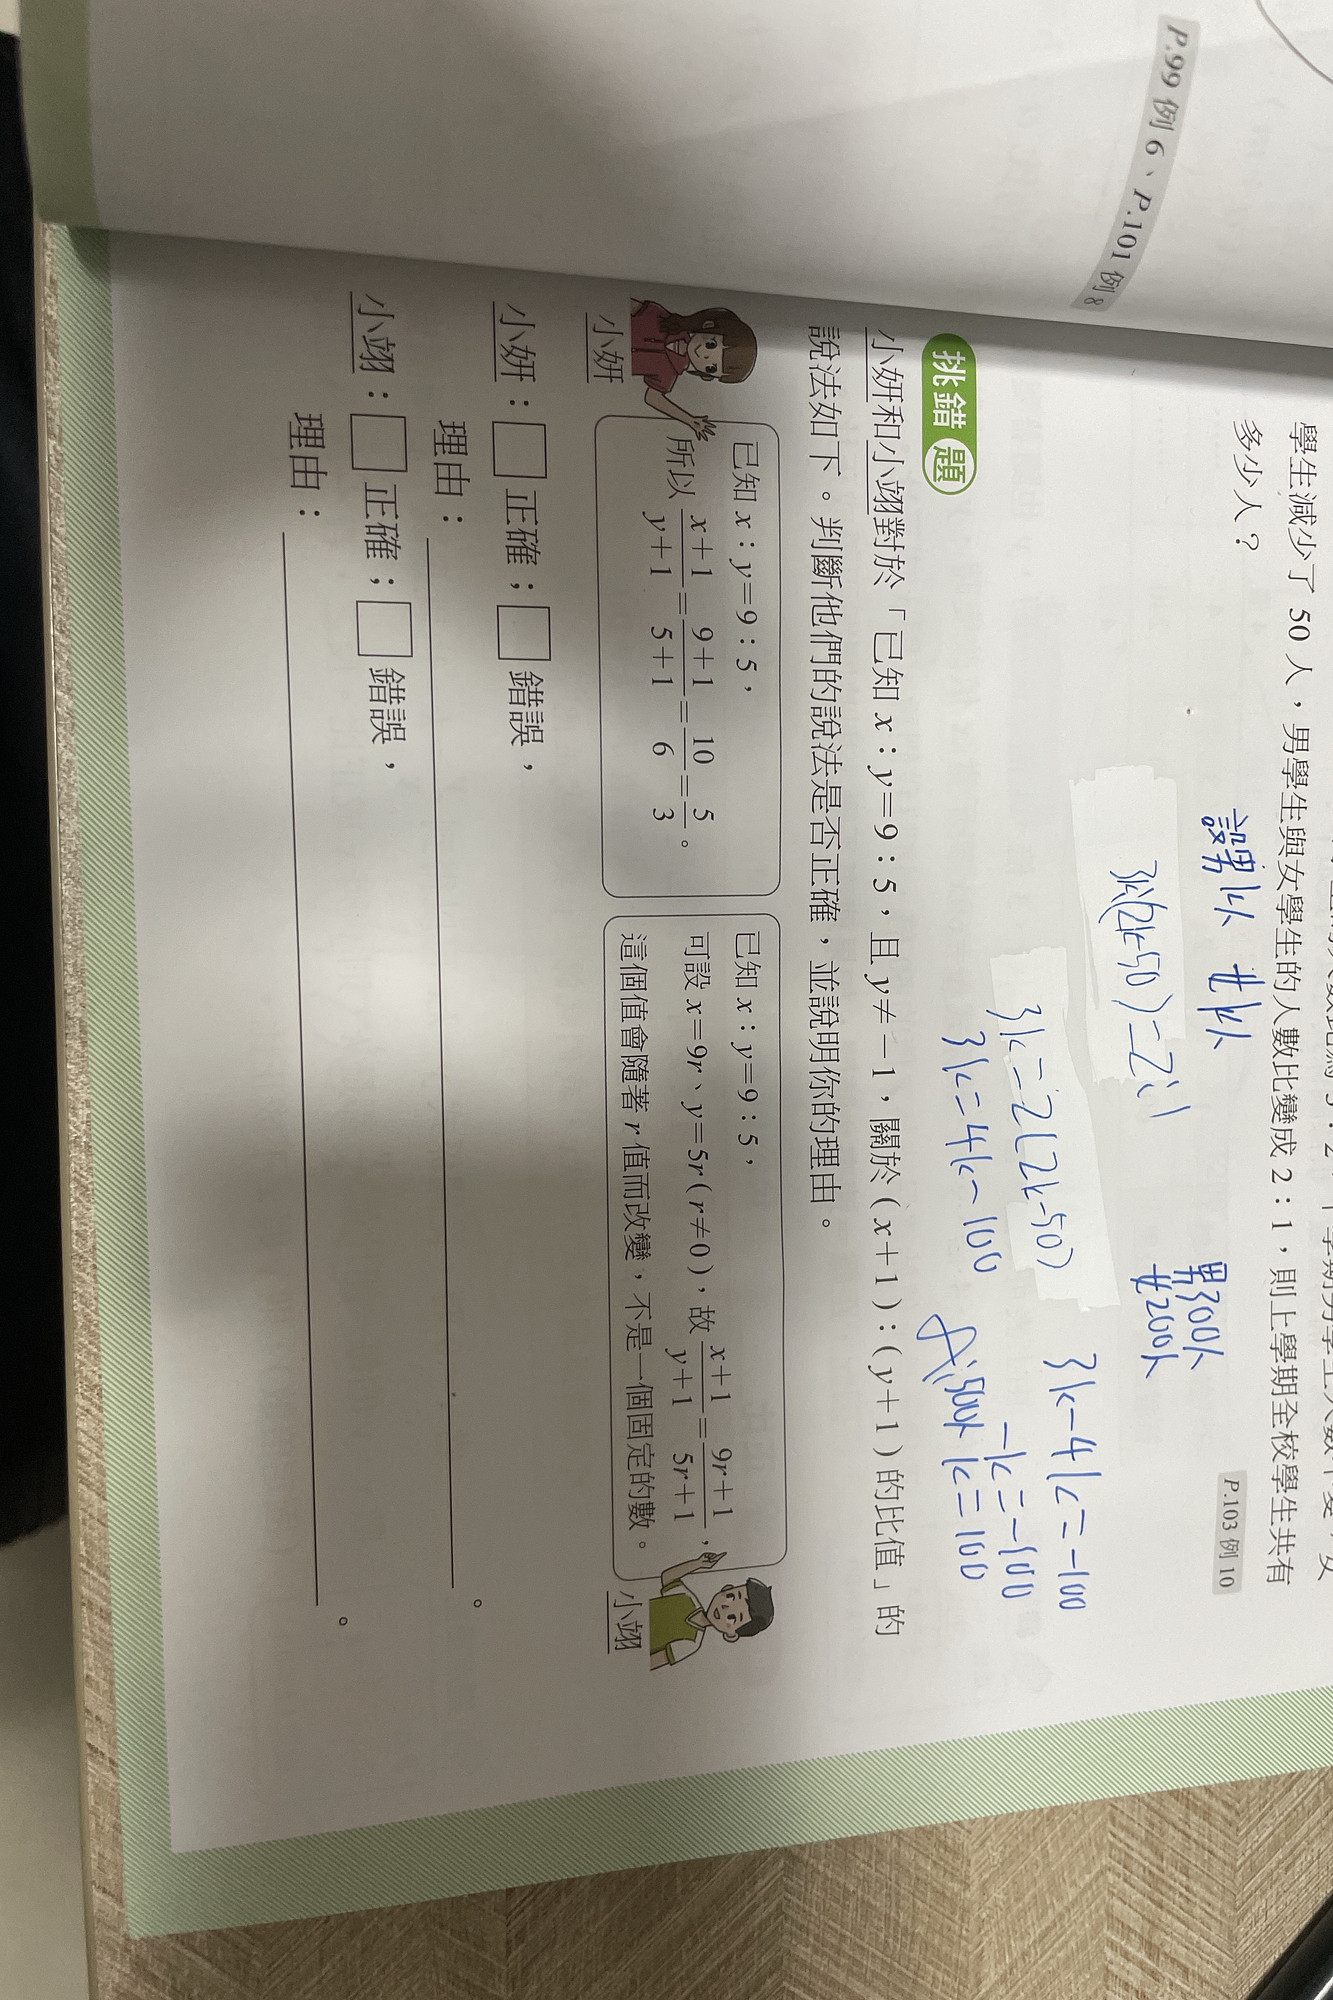 P.99 例 6、P.101 例 8
學生減少了 50 人，男學生與女學生的人數比變成 2：1，則上學期全校學生共有
多少人？
P.103 例 10
設男3k人 女2k人
男300人
女200人
3k:(2k-50)=2:1
3k=2(2k-50)
3k=4k-100
3k-4k=-100
-k=-100
k=100
A:500人
挑錯題
小妍和小翊對於「已知 x：y＝9：5，且 y≠－1，關於（x＋1）：（y＋1）的比值」的
說法如下。判斷他們的說法是否正確，並說明你的理由。
小妍
已知 x：y＝9：5，
所以 x＋1/y＋1＝9＋1/5＋1＝10/6＝5/3。
已知 x：y＝9：5，
可設 x＝9r、y＝5r（r≠0），故 x＋1/y＋1＝9r＋1/5r＋1，
這個值會隨著 r 值而改變，不是一個固定的數。
小翊
小妍：□正確；□錯誤，
理由：。
小翊：□正確；□錯誤，
理由：。